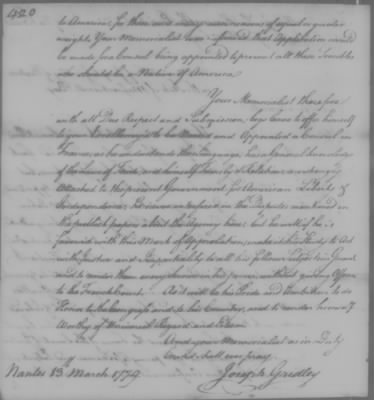 420
to America; for these and many more reasons of equal or greater
weight, Your Memorialist was informed that Application would
be made for a Consul being appointed to prevent all these Troubles
who should be a Native of America
Your Memorialist therefore
with all Due Respect and Submission, begs leave to offer himself
to your to be Named and Appointed a Consul in
France, as he understands the Language, has a general knowledge
of the Laws of Trade, and himself &
Attached to the present Government for American Liberty &
Independence; in the Disputes mentioned in
the publick papers about the Agency here; but he will if he is
favored with this Mark of Approbation, make it his Study to Act
with Justice and Impartiality to all his Fellow Subjects in General
and to render them every Service in his power, without giving Offence
to the French Court. As it will be his Pride and Ambition to do
Honor to the Congress and to his Country, and to render himself
Worthy of Universal Regard and Esteem
And your Memorialist as in Duty
bound shall ever pray.
Nantes 13 March 1779 Joseph Gridley